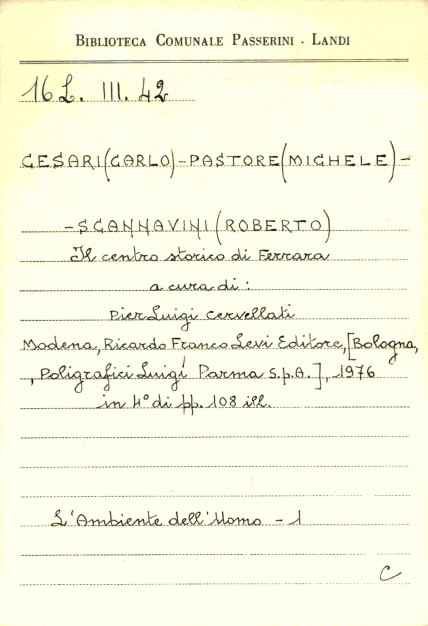 BIBLIOTECA COMUNALE PASSERINI - LANDI
16 L. III. 42
CESARI (CARLO) - PASTORE (MICHELE) -
- SCANNAVINI (ROBERTO)
Il centro storico di Ferrara
a cura di :
Pier Luigi Cervellati
Modena, Ricardo Franco Levi Editore, [Bologna,
, Poligrafici Luigi Parma S.p.A.], 1976
in 4° di pp. 108 ill.
L'Ambiente dell'Uomo - 1
C